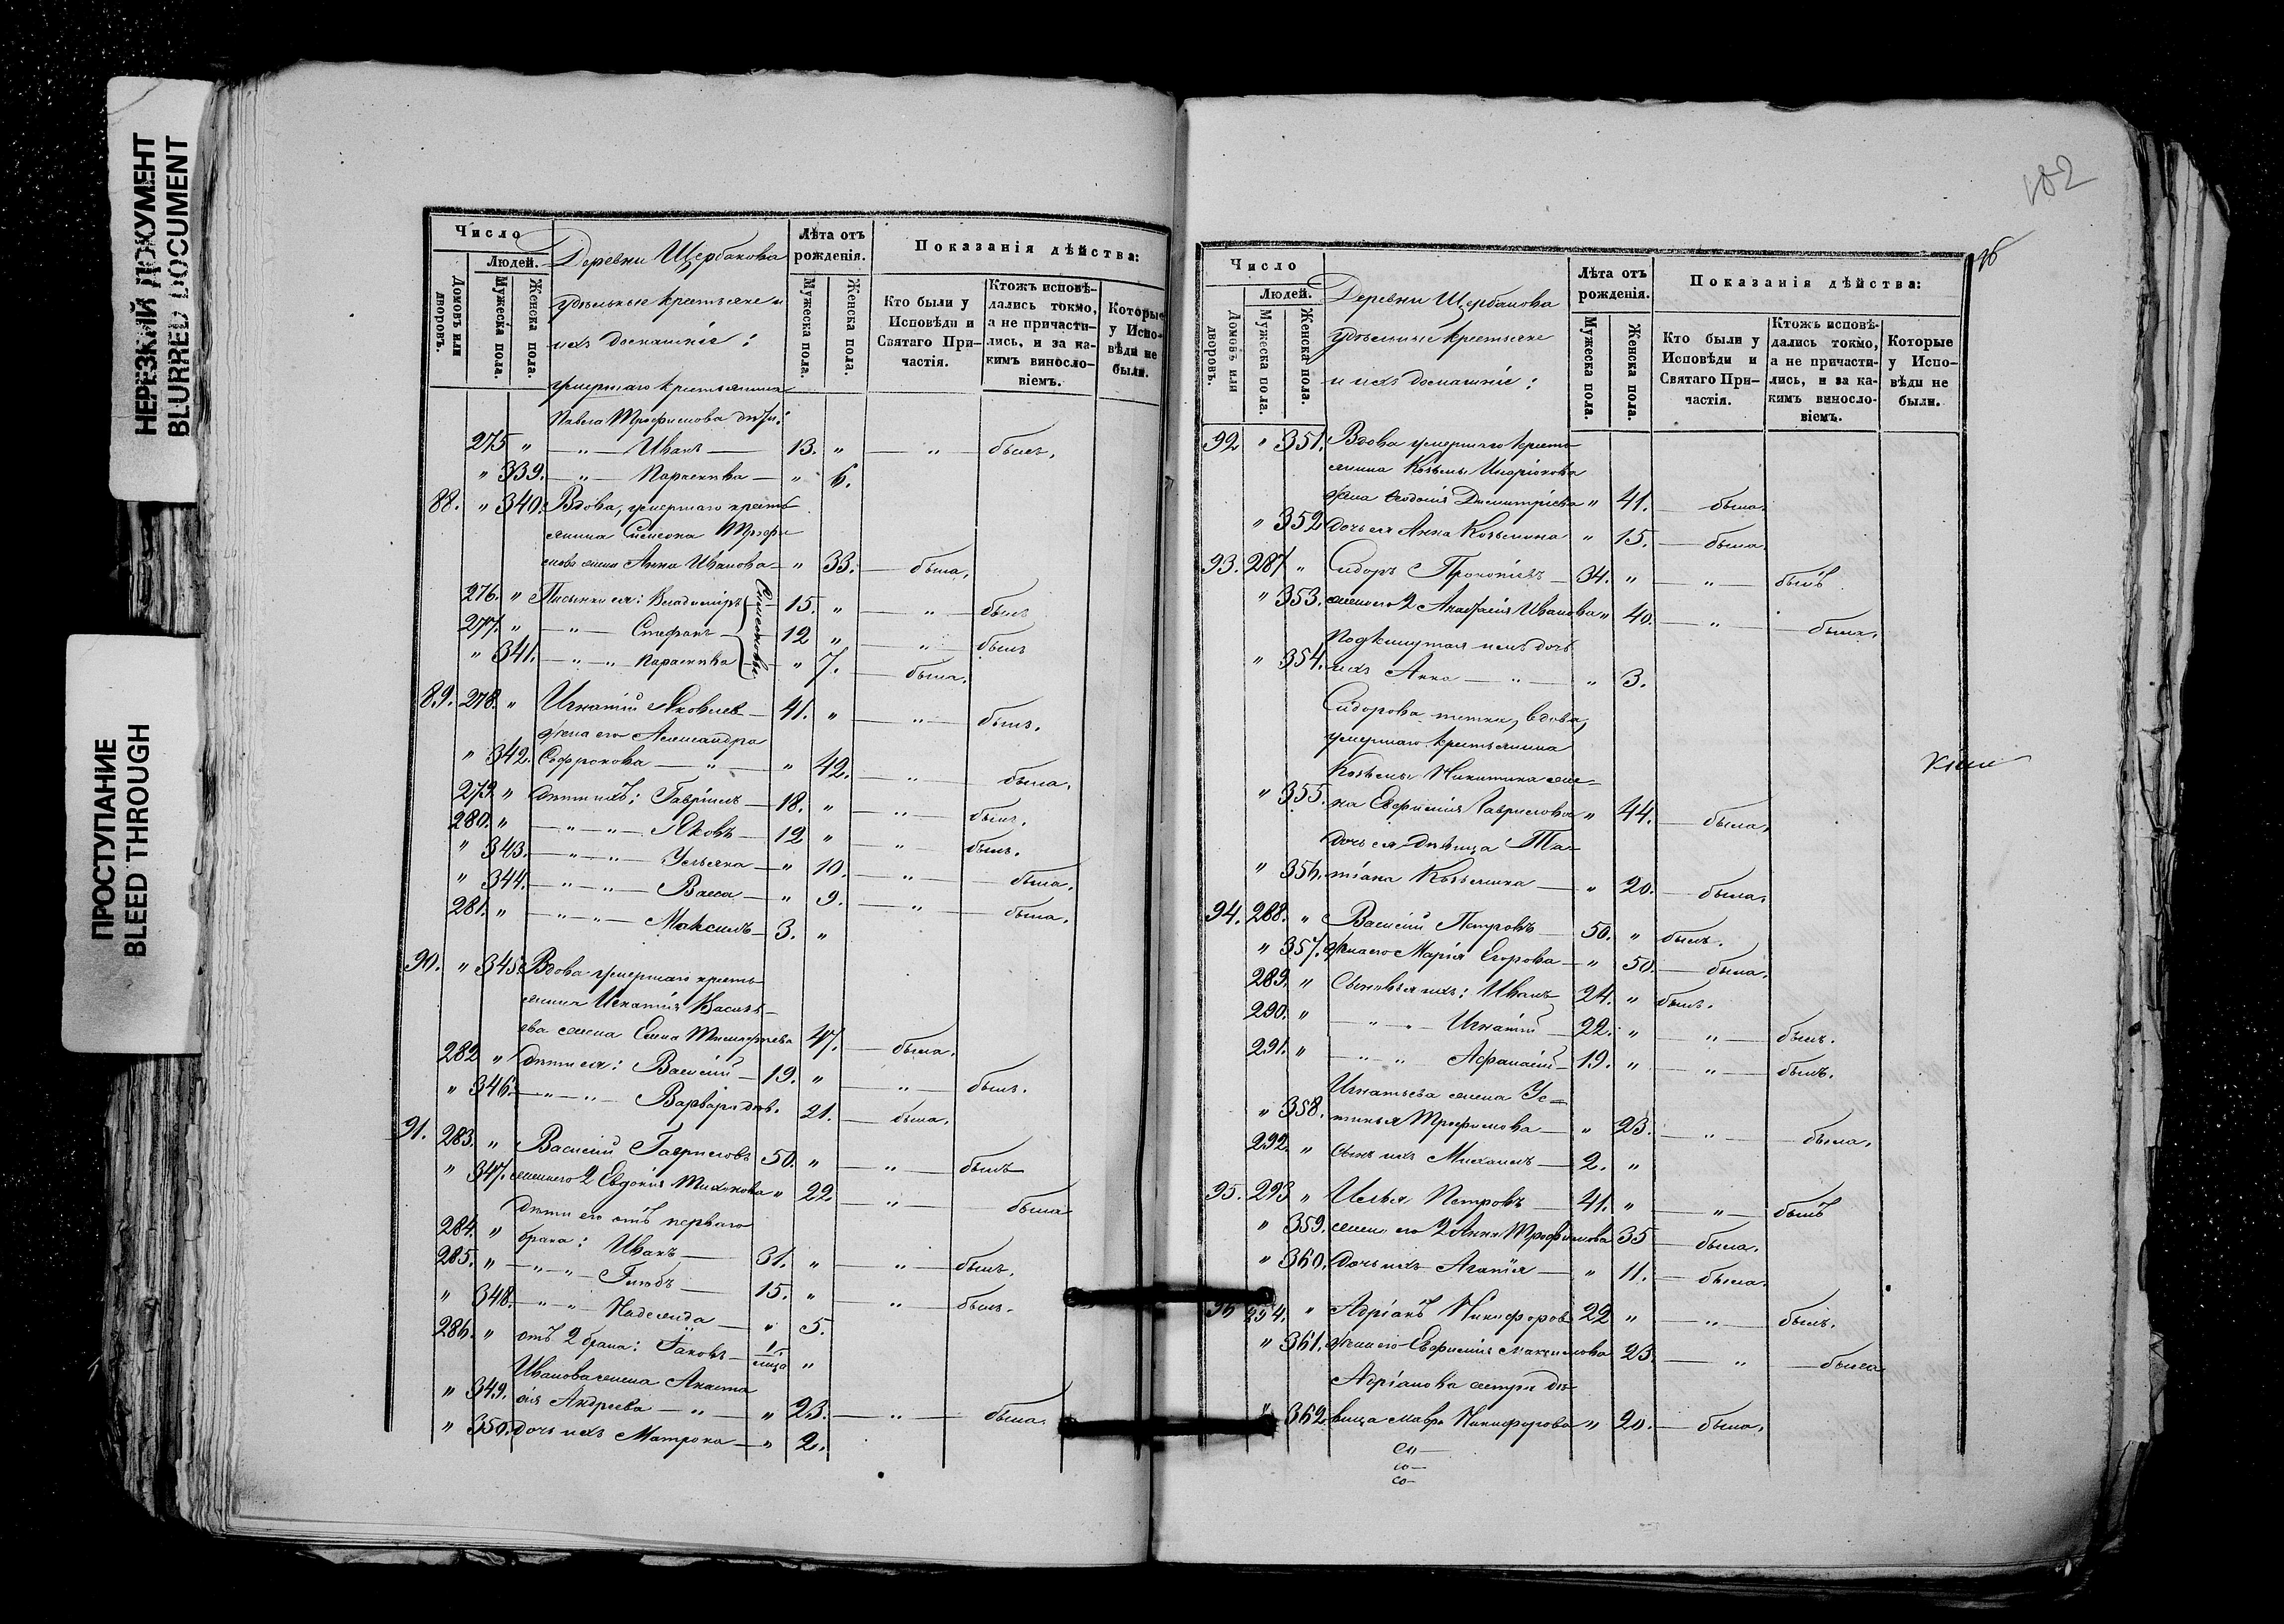 НЕРЕЗКИЙ ДОКУМЕНТ
BLURRED DOCUMENT
ПРОСТУПАНИЕ
BLEED THROUGH
Число
Людей.
Домовъ или дворовъ.
Мужеска пола.
Женска пола.
Деревни Щербакова
удѣльные крестьяне и
ихъ домашніе:
Лѣта отъ рожденія.
Мужеска пола.
Женска пола.
Показанія дѣйства:
Кто были у Исповѣди и Святаго Причастія.
Ктожъ исповѣдались токмо, а не причастились, и за какимъ винословіемъ.
Которые у Исповѣди не были.
умершаго крестьянина
Павла Трофимова дѣти:
275 " — " — Иванъ — 13. " — " — былъ.
" 339. — " — Параскева — " 6.
88. " 340. Вдова, умершаго кресть
янина Симеона Трофи
мова жена Анна Иванова — " 33. — была.
276. " Пасынки ея: Владиміръ — 15. " — " — былъ
277. " — " — Стефанъ — 12 " — " — былъ
" 341. — " — " Параскева — " 7. — была.
Симеоновы
89. 278. " Игнатій Яковлев — 41. " — " — былъ.
жена его Александра
" 342. Софронова — " — " 42. — " — была.
279. " Дѣти ихъ: Гавріилъ — 18. " — " — былъ.
280. " — " — " — Яковъ — 12 " — " — былъ.
" 343. — " — " — Ульяна — " 10. — " — была.
" 344. — " — " — Васса — " 9. — " — была.
281. " — " — " — Максимъ — 3. "
90. " 345. Вдова умершаго кресть
янина Игнатія Василь
ева жена Елена Тимофеева 47. — была.
282 " Дѣти ея: Василій — 19. " — " — былъ.
" 346. — " — " — Варвара дѣв. 21. — была.
91. 283. " Василій Гавриловъ 50. " — " — былъ
" 347. жена его 2 Евдокія Тихонова " 22 — " — была
Дѣти его отъ перваго
284. " брака: Иванъ — 31. " — " — былъ.
285. " — " — " — Глѣбъ — 15. " — " — былъ.
" 348. — " — " Надежда — " 5.
286. " отъ 2 брака: Іаковъ — "
Иванова жена Анаста
" 349. сія Андреева — " — " 23. — " — была.
" 350. дочь ихъ Матрона — " 2.
182
Число
Людей.
Домовъ или дворовъ.
Мужеска пола.
Женска пола.
Деревни Щербакова
удѣльные крестьяне
и ихъ домашніе:
Лѣта отъ рожденія.
Мужеска пола.
Женска пола.
Показанія дѣйства:
Кто были у Исповѣди и Святаго Причастія.
Ктожъ исповѣдались токмо, а не причастились, и за какимъ винословіемъ.
Которые у Исповѣди не были.
92 " 351. Вдова умершаго кресть
янина Козьмы
жена Ѳеодосія Димитріева " 41. — была.
" 352 дочь ея Анна Козьмина " 15. — была.
93. 287 " Сидоръ Прокопіевъ — 34. " — " — былъ
" 353. жена его 2 Анафія Иванова " 40. — " — была.
дочь
" 354. ихъ Анна — " — " 3.
Сидорова тетка, вдова,
умершаго крестьянина
Козьмы Никитина же-
" 355. на Евфимія Гаврилова " 44. — была.
дочь ея дѣвица Та-
" 356. тіана Козьмина — " 20. — была.
94. 288. " Василій Петровъ 50. " былъ.
" 357. жена его Марія Егорова — " 50. — была.
289. " Сыновья ихъ: Иванъ 24. " былъ.
290. " — " — " — Игнатій 22. " — " — былъ.
291. " — " — " Афанасій — 19. " — " — былъ.
Игнатьева жена Ус-
" 358. тинья Трофимова — " 23. — " — была.
292. " сынъ ихъ Михаилъ — 2. "
95. 293 " Илья Петровъ — 41. " — " — былъ
" 359. жена его 2 Анна Трофимова 35 — была.
" 360. Дочь ихъ Агапія — " 11. — была.
96 294. " Адріанъ Никифоров 22 " — " — былъ.
" 361. жена его Евфимія Максимова 23. — " — была
Адріанова сестра дѣ-
" 362. вица Мавра Никифорова " 20. — была.